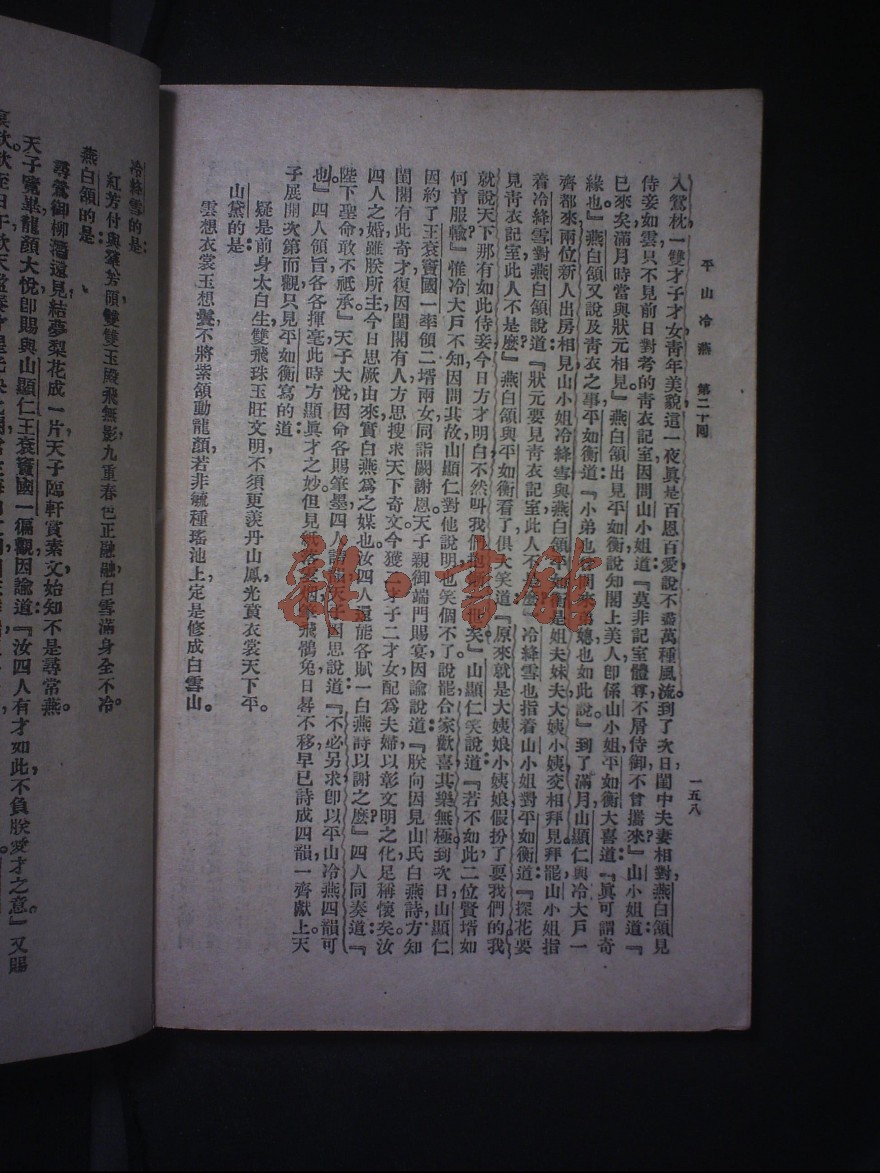 平山冷燕　第二十回
一五八
入鴛枕，一雙才子才女，青年美貌，這一夜眞是百恩百愛，說不盡萬種風流。到了次日，閨中夫妻相對，燕白頷見
侍妾如雲，只不見前日對考的靑衣記室，因問山小姐道：『莫非記室體尊，不屑侍御，不曾攜來？』山小姐道：『
已來矣，滿月時當與狀元相見。』燕白頷出見平如衡，說知閣上美人，卽係山小姐，平如衡大喜道：『眞可謂奇
緣也。』燕白頷又說及靑衣之事，平如衡道：『小弟也
也如此說。』到了滿月，山顯仁與冷大戶一
齊都來，兩位新人出房相見，山小姐冷絳雪與燕白頷平如衡是姐夫妹夫，大姨小姨，交相拜見，拜罷，山小姐指
着冷絳雪對燕白頷說道：『狀元要見靑衣記室，此人不是麽？』冷絳雪也指着山小姐對平如衡道：『探花要
見靑衣記室，此人不是麽？』燕白頷與平如衡看了，俱大笑道：『原來就是大姨娘小姨娘假扮了耍我們的，我
就說天下那有如此侍妾，今日方才明白，不然叫我們
』山顯仁笑說道：『若不如此，二位賢壻如
何肯服輸？』惟冷大戶不知，因問其故，山顯仁對他說明，也笑個不了，說罷，合家歡喜，其樂無極。到次日，山顯仁
因約了王袞竇國一，率領二壻兩女，同詣闕謝恩。天子親御端門賜宴，因諭說道：『朕向因見山氏白燕詩，方知
閨閣有此奇才，復因閨閣有人，方思搜求天下奇文，今獲二才子二才女，配爲夫婦，以彰文明之化，足稱懷矣。汝
四人之婚，雖朕所主，今日思厥由來，實白燕爲之媒也，汝四人還能各賦一白燕詩以謝之麽？』四人同奏道：『
陛下聖命，敢不祇承。』天子大悅，因命各賜筆墨，四人請題，天子因思說道：『不必另求，卽以平山冷燕四韻可
也。』四人領旨，各各揮毫，此時方顯眞才之妙，但見
飛鶻兔，日晷不移，早已詩成四韻，一齊獻上。天
子展開，次第而觀，只見平如衡寫的道：
疑是前身太白生，雙飛珠玉旺文明，不須更羨丹山鳳，光賁衣裳天下平。
山黛的是：
雲想衣裳玉想鬟，不將紫頷動龍顏，若非毓種瑤池上，定是修成白雪山。
冷絳雪的是：
紅芳付與羣芳領，雙雙玉殿飛無影，九重春色正融融，白雪滿身全不冷。
燕白頷的是：
尋鶯御柳潛還見，結夢梨花成一片，天子臨軒賞素文，始知不是尋常燕。
天子覽畢，龍顏大悅，卽賜與山顯仁王袞竇國一徧觀，因諭道：『汝四人有才如此，不負朕愛才之意。』又賜